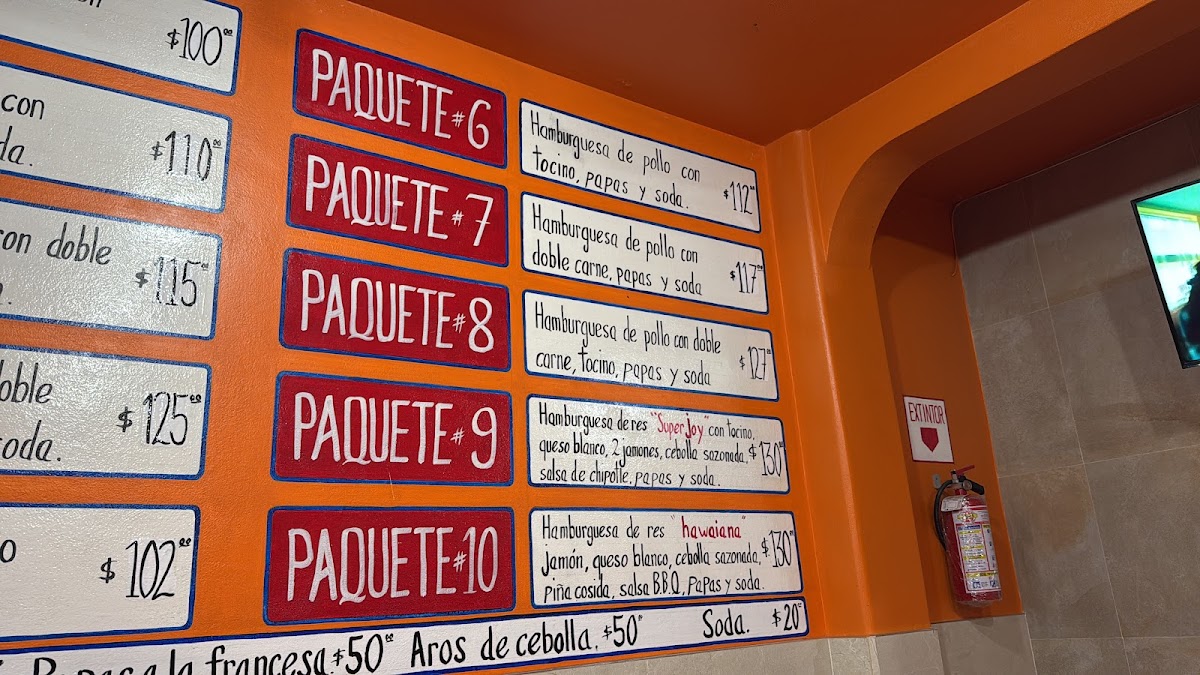 $100.00
con
$110.00
con doble
$115.00
doble
soda.
$125.00
$102.00
PAQUETE #6
Hamburguesa de pollo con
tocino, papas y soda. $112.00
PAQUETE #7
Hamburguesa de pollo con
doble carne, papas y soda $117.00
PAQUETE #8
Hamburguesa de pollo con doble
carne, tocino, papas y soda $127
PAQUETE #9
Hamburguesa de res "Super joy" con tocino,
queso blanco, 2 jamones, cebolla sazonada,
salsa de chipotle, papas y soda. $130.00
PAQUETE #10
Hamburguesa de res "hawaiana"
jamón, queso blanco, cebolla sazonada,
piña cosida, salsa B.B.Q, papas y soda. $130.00
Papas a la francesa. $50.00 Aros de cebolla. $50.00 Soda. $20.00
EXTINTOR